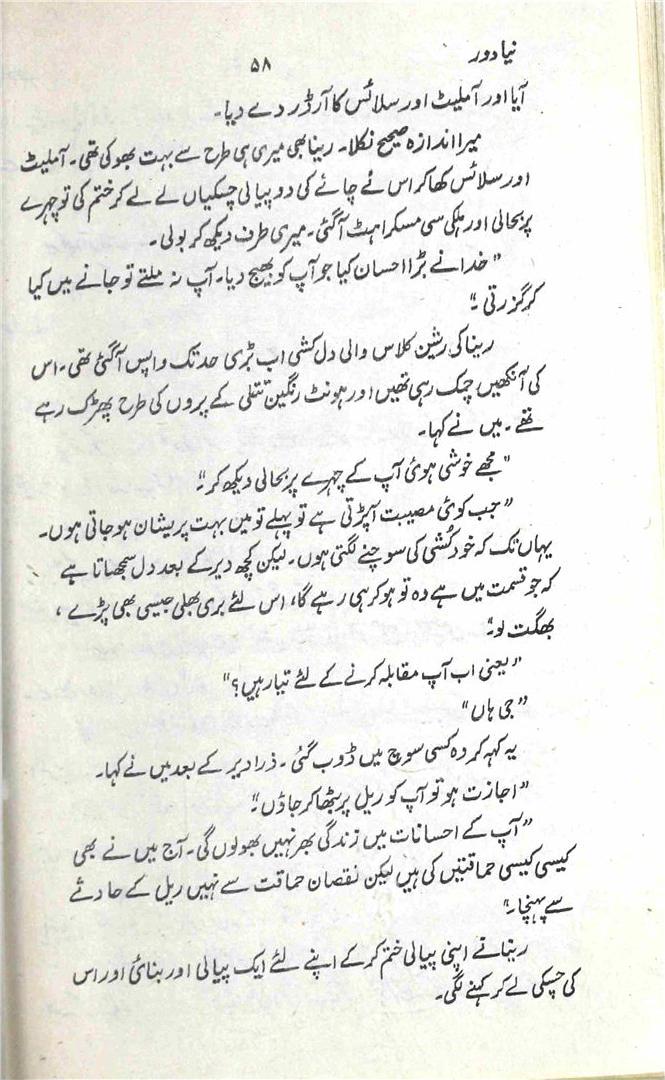 نیا دور
۵۸
آیا اور آملیٹ اور سلائس کا آرڈر دے دیا۔
میرا اندازہ صحیح نکلا۔ رینا بھی میری ہی طرح سے بہت بھوکی تھی۔ آملیٹ
اور سلائس کھا کر اس نے چائے کی دو پیالی چسکیاں لے لے کر ختم کی تو چہرے
پر بحالی اور ہلکی سی مسکراہٹ آگئی۔ میری طرف دیکھ کر بولی۔
"خدا نے بڑا احسان کیا جو آپ کو بھیج دیا۔ آپ نہ ملتے تو جانے میں کیا
کر گزرتی۔"
رینا کی رشین کلاس والی دل کشی اب بڑی حد تک واپس آگئی تھی۔ اس
کی آنکھیں چمک رہی تھیں اور ہونٹ رنگین تتلی کے پروں کی طرح پھڑک رہے
تھے۔ میں نے کہا۔
"مجھے خوشی ہوئی آپ کے چہرے پر بحالی دیکھ کر۔"
"جب کوئی مصیبت آپڑتی ہے تو پہلے تو میں بہت پریشان ہو جاتی ہوں۔
یہاں تک کہ خودکُشی کی سوچنے لگتی ہوں۔ لیکن کچھ دیر کے بعد دل سمجھاتا ہے
کہ جو قسمت میں ہے وہ تو ہو کر ہی رہے گا، اس لئے بری بھلی جیسی بھی پڑے،
بھگت لو۔"
"یعنی اب آپ مقابلہ کرنے کے لئے تیار ہیں؟"
"جی ہاں"
یہ کہہ کر وہ کسی سوچ میں ڈوب گئی۔ ذرا دیر کے بعد میں نے کہا۔
"اجازت ہو تو آپ کو ریل پر بٹھا کر جاؤں۔"
"آپ کے احسانات میں زندگی بھر نہیں بھولوں گی۔ آج میں نے بھی
کیسی کیسی حماقتیں کی ہیں لیکن نقصان حماقت سے نہیں ریل کے حادثے
سے پہنچا۔"
رینا نے اپنی پیالی ختم کر کے اپنے لئے ایک پیالی اور بنائی اور اس
کی چسکی لے کر کہنے لگی۔